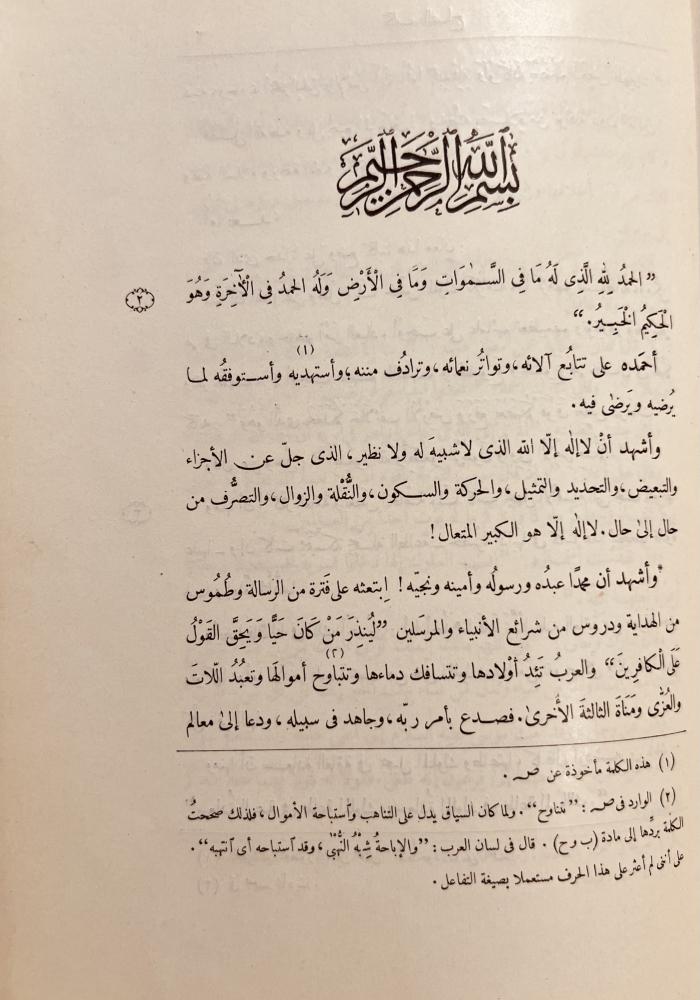 بِسْمِ اللَّهِ الرَّحْمَنِ الرَّحِيمِ
”الحمدُ لِلهِ الَّذِى لَهُ مَا فِى السَّـمٰوَاتِ وَمَا فِى الْأَرْضِ وَلَهُ الحمدُ فِى الْآخِرَةِ وَهُوَ
(٢)
الْحَكِيمُ الْخَبِـيرُ.“
أحمَده على تتابُع آلائه، وتواتُر نعمائه، وترادُف مننه (١)؛ وأستهديه وأسـتوفقُه لمـا
يُرضيه ويَرضىٰ فيه.
وأشهد أنْ لا إلٰه إلّا الله الذى لاشبيهَ له ولا نظير، الذى جلّ عن الأجزاء
والتبعيض، والتحديد والتمثيل، والحركة والسـكون، والنُّقْلة والزوال، والتصرُّف من
حال إلىٰ حال. لا إلٰه إلّا هو الكبير المتعال!
وأشهد أن محمدًا عبدُه ورسولُه وأمينه ونجيّه! اِبتعثه على فَترة من الرسالة وطُمُوس
من الهداية ودروس من شرائع الأنبياء والمرسَلين ”لِيُنذِرَ مَنْ كَانَ حَيًّا وَيَحِقَّ القَوْلُ
عَلَى الْكافِرِينَ“ والعربُ تَئِدُ أوْلادها وتتسافك دماءها وتتَباوح (٢) أموالهَا وتعبُدُ اللّات
والعُزّٰى ومَنَاةَ الثالثةَ الأُخرىٰ. فصـدع بأمر ربّه، وجاهد فى سبيله، ودعا إلىٰ معالم
(١) هذه الكلمة مأخوذة عن صـ.
(٢) الوارد فى صـ : ”تتناوح“. ولما كان السياق يدل على التناهب وٱستباحة الأموال، فلذلك صححتُ
الكلمة بردّها إلى مادة (ب و ح). قال فى لسان العرب : ”والإباحةُ شِبْهُ النُّهْبىٰ، وقد ٱستباحه أى ٱنتهبه“.
على أننى لم أعثر على هذا الحرف مستعملا بصيغة التفاعل.